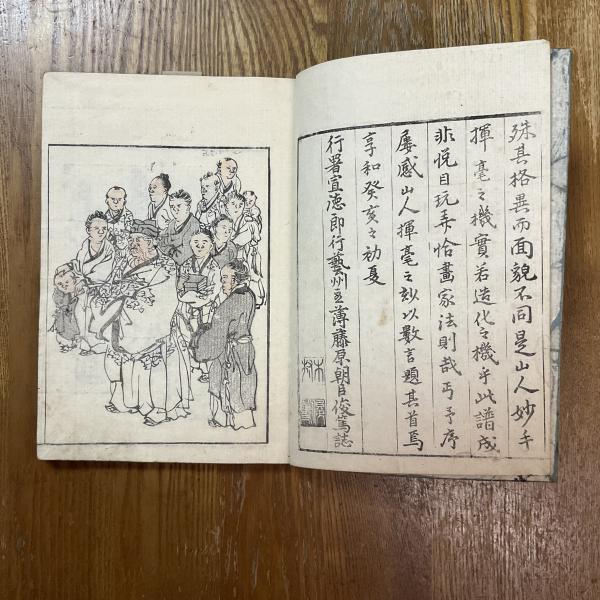 殊其格異而面貌不同是山人妙手
揮毫之機實若造化之機乎此譜成
非悦目玩弄恰畫家法則哉丐予序
屡感山人揮毫之妙以數言題其首焉
享和癸亥之初夏
行署宣徳郎行藝州主簿藤原朝臣俊篤誌